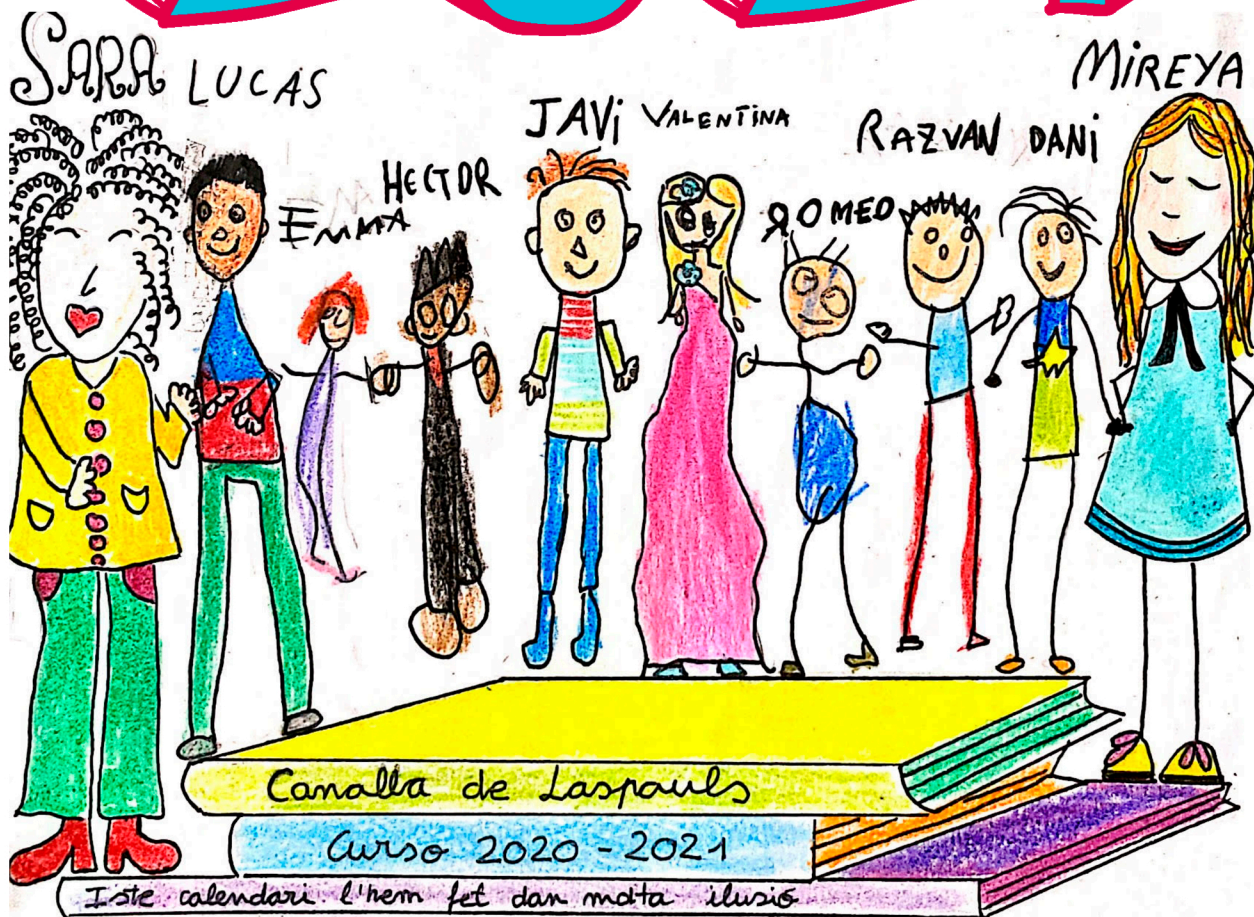 SARA LUCAS
EMMA HECTOR
JAVI VALENTINA
ROMEO
RAZVAN DANI
MIREYA
Canalla de Laspauls
Curso 2020-2021
Iste calendari l'hem fet dan molta ilusió